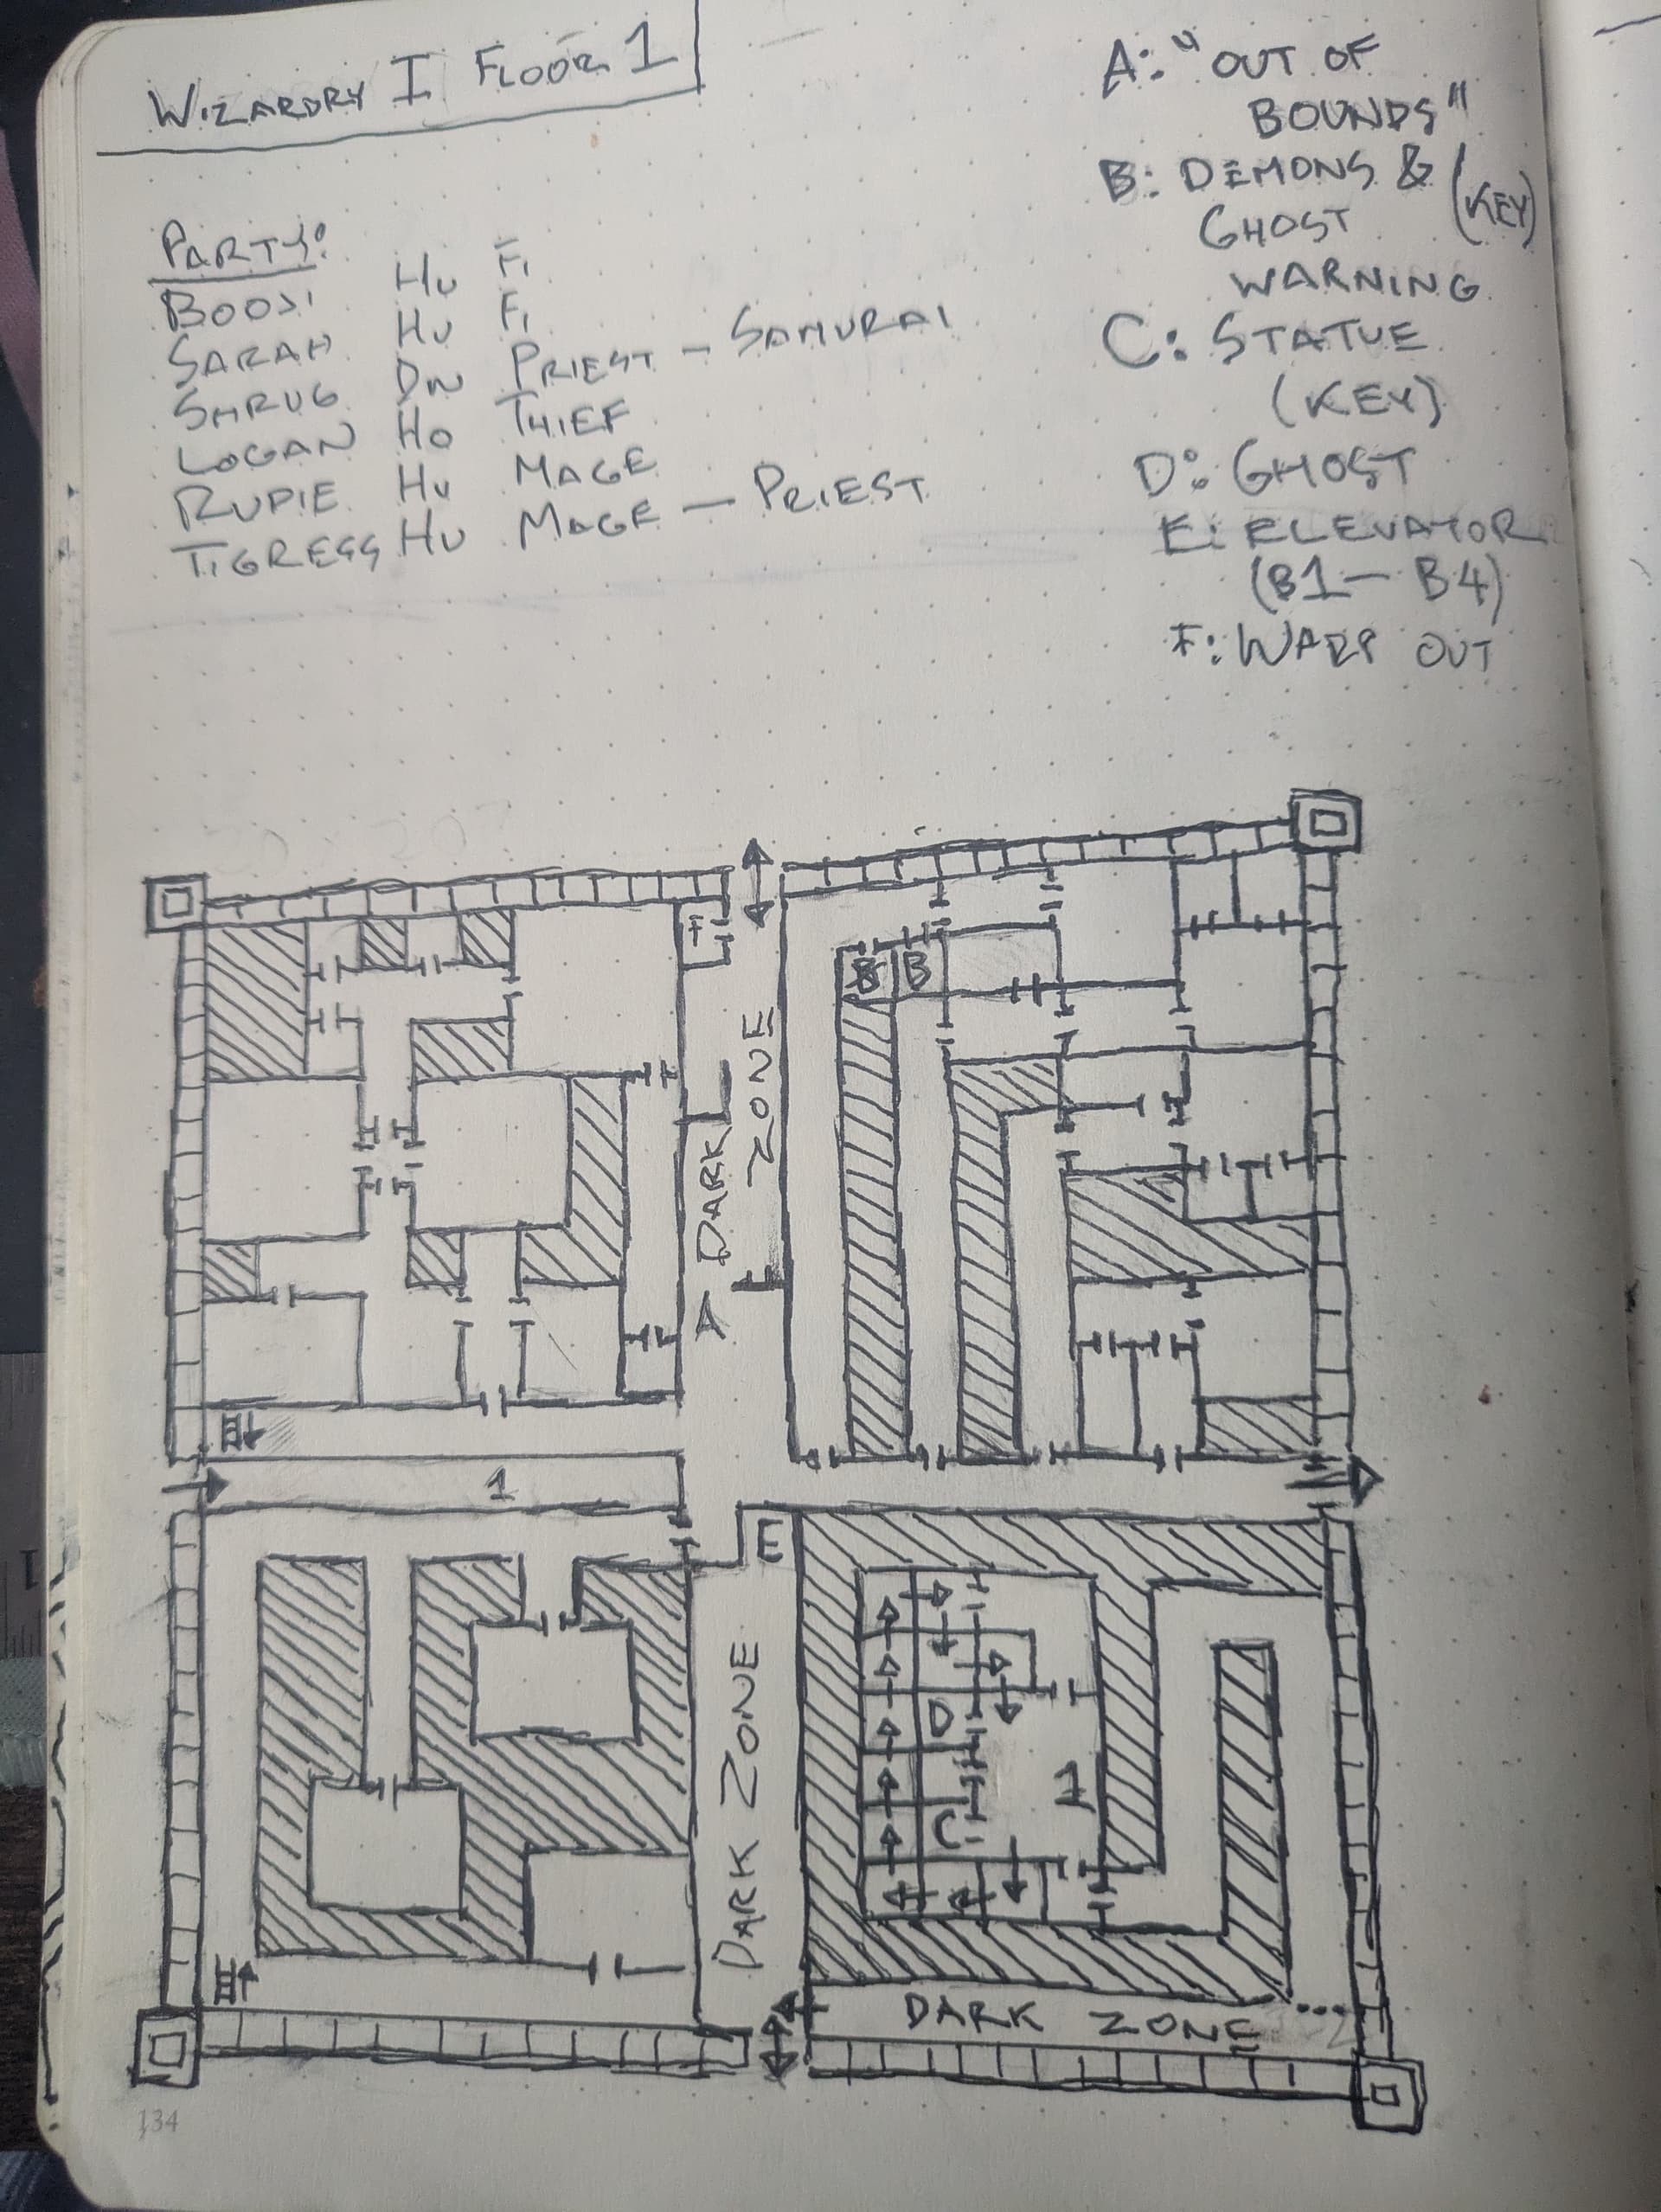 WIZARDRY I FLOOR 1
PARTY:
BOOSI HU FI
SARAH HU FI
SHRUG DW PRIEST - SAMURAI
LOGAN HO THIEF
RUPIE HU MAGE
TIGRESS HU MAGE - PRIEST
A: "OUT OF
BOUNDS"
B: DEMONS &
GHOST (KEY)
WARNING
C: STATUE
(KEY)
D: GHOST
E: ELEVATOR
(B1 - B4)
F: WARP OUT
F
B B
DARK
ZONE
A
1
E
D
1
C
DARK ZONE
DARK ZONE
134